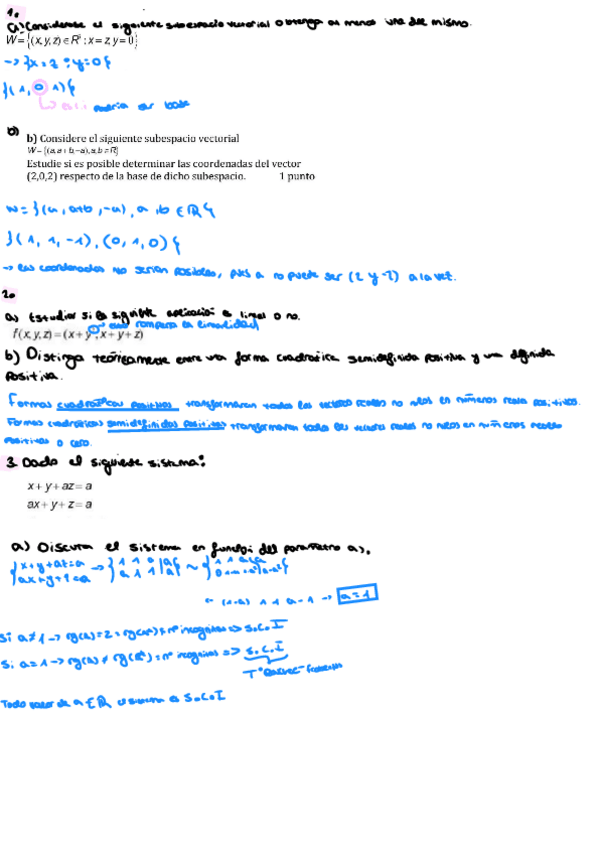 1.
a) Considerese el siguiente subespacio vectorial obtenga al menos una del mismo.
W = {(x, y, z) ∈ R³ ; x = z, y = 0}
→ {x = z ; y = 0{
}(1, 0, 1){
podria ser base
b)
b) Considere el siguiente subespacio vectorial
W = {(a, a + b, -a), a, b ∈ R}
Estudie si es posible determinar las coordenadas del vector
(2,0,2) respecto de la base de dicho subespacio. 1 punto
W = }(a, a+b, -a), a, b ∈ R{
}(1, 1, -1), (0, 1, 0){
→ las coordenadas no serian posibles, pues a no puede ser (2 y -2) a la vez.
2.
a) Estudiar si la siguiente aplicación es lineal o no.
rompera la linealidad
f(x, y, z) = (x + y , x + y + z)
b) Distinga teóricamente entre una forma cuadratica semidefinida positiva y una definida
positiva.
Formas cuadraticas positivas transformaran todos los vectores reales no nulos en números reales positivos.
Formas cuadraticas semidefinidas positivas transformaran todos los vectores reales no nulos en números reales
positivos o cero.
3. Dado el siguiente sistema:
x + y + az = a
ax + y + z = a
a) Discuta el sistema en función del parametro a).
→ a = 1
Si a ≠ 1 → rg(A) = 2 = rg(A*) ≠ nº incognitas => S.C.I
Si a = 1 → rg(A) = rg(A*) ≠ nº incognitas => S.C.I
Todo valor de a ∈ R el sistema es S.C.I